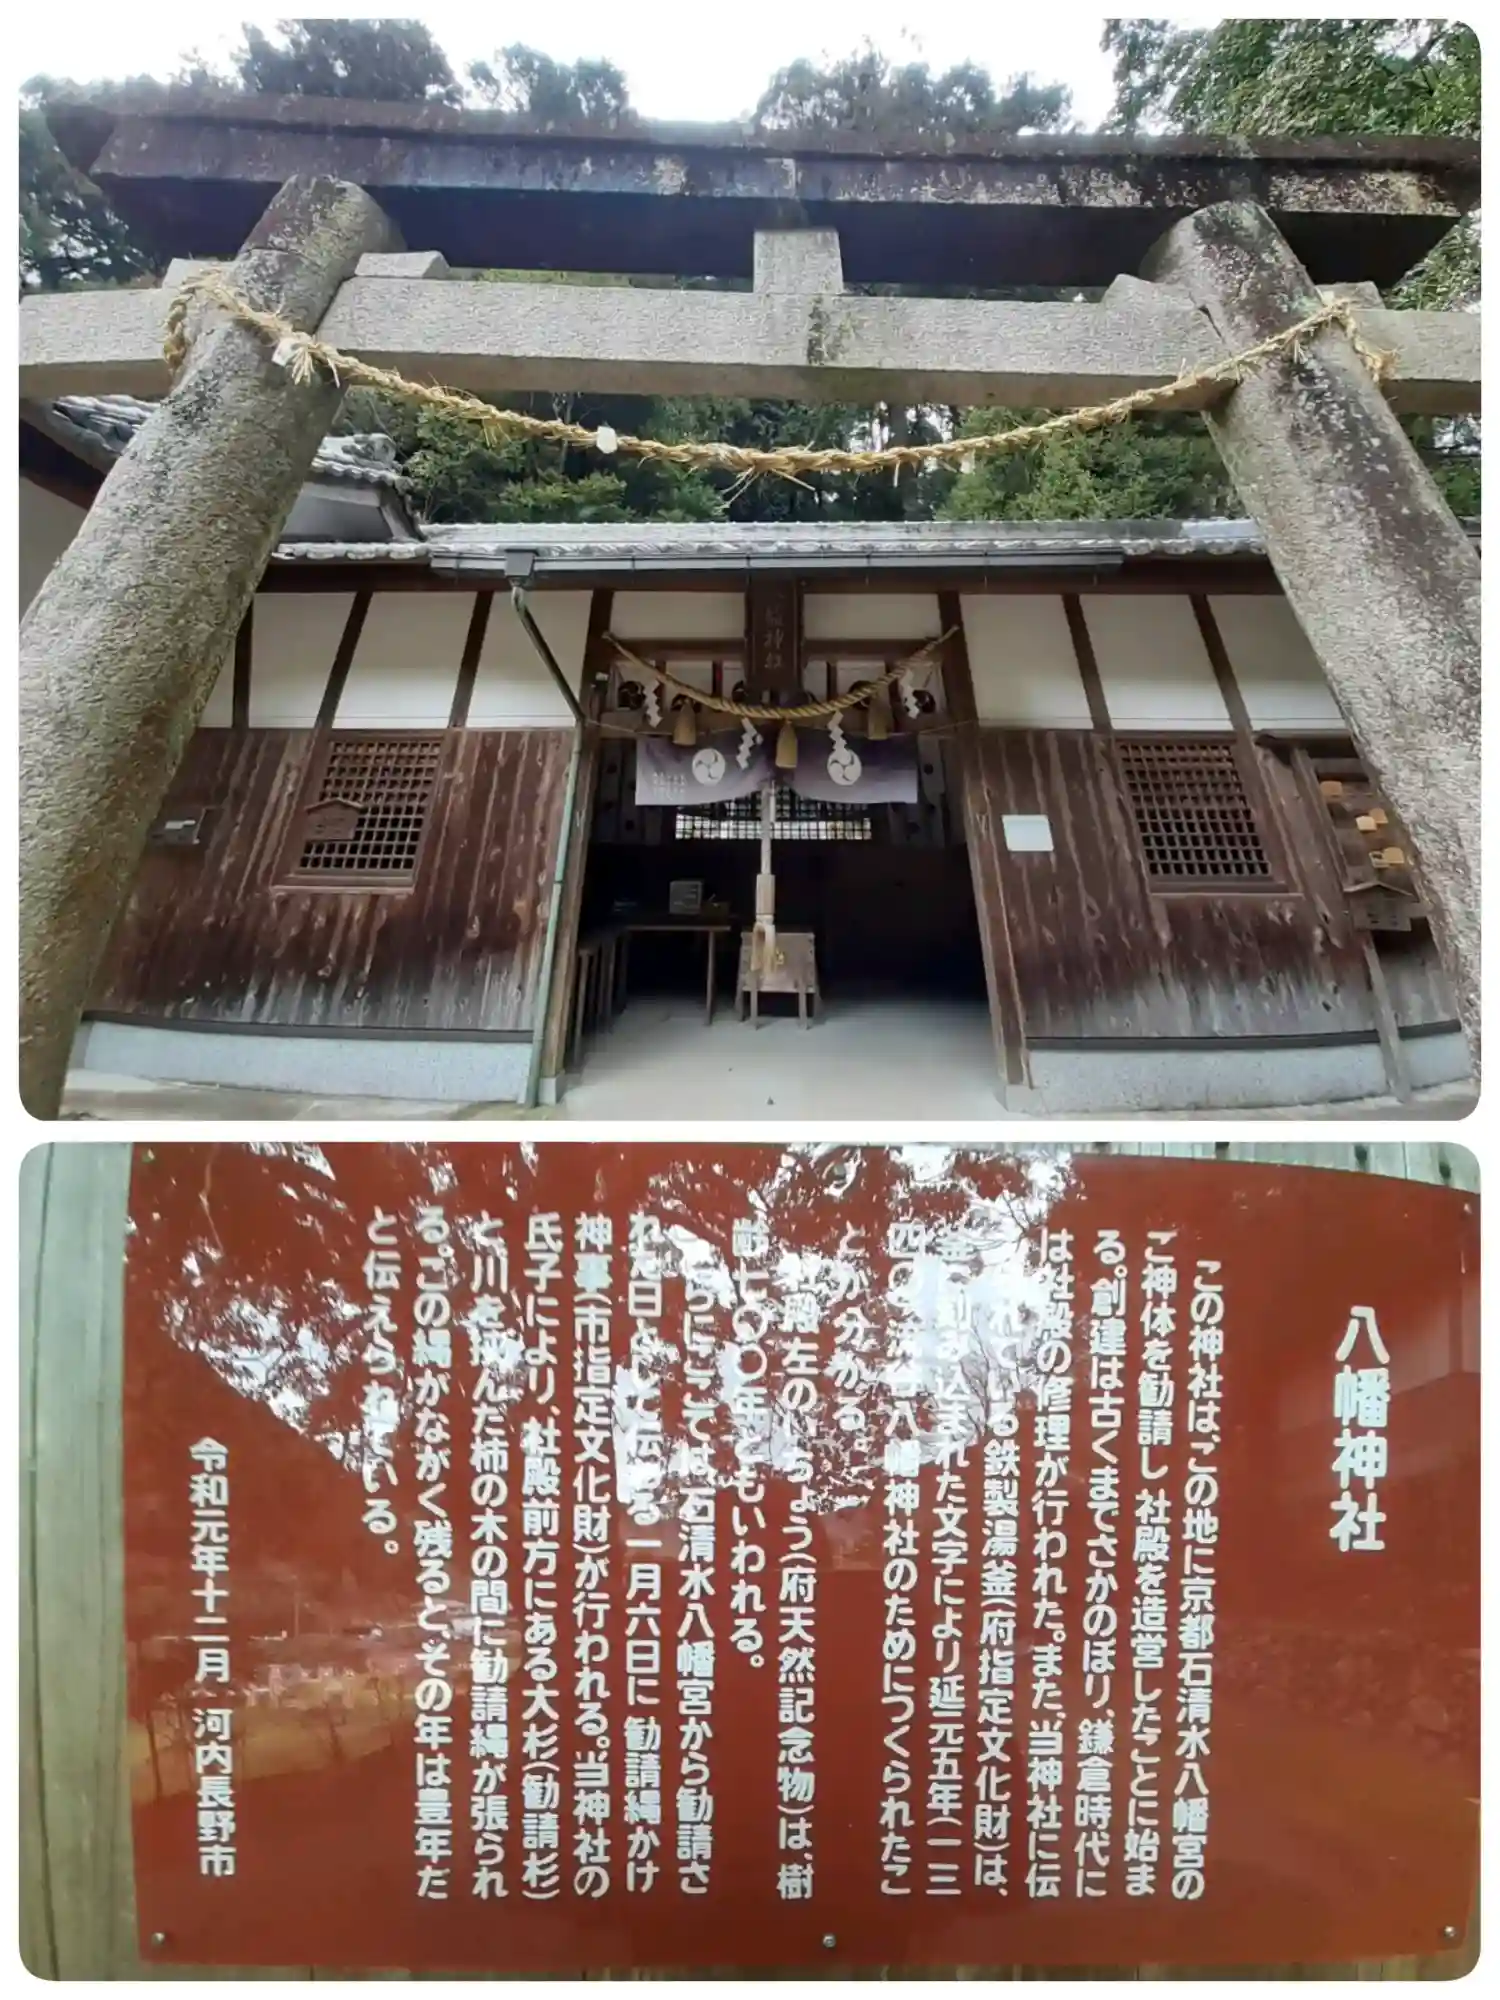 神社
八幡神社
この神社は、この地に京都石清水八幡宮の
ご神体を勧請し社殿を造営したことに始ま
る。創建は古くまでさかのぼり、鎌倉時代に
は社殿の修理が行われた。また、当神社に伝
れている鉄製湯釜(府指定文化財)は、
釜に刻み込まれた文字により延元五年(一三
四〇)流谷八幡神社のためにつくられたこ
とが分かる。
社殿左のいちょう(府天然記念物)は、樹
齢七〇〇年ともいわれる。
さらにここでは、石清水八幡宮から勧請さ
れた日として伝わる一月六日に勧請縄かけ
神事(市指定文化財)が行われる。当神社の
氏子により、社殿前方にある大杉(勧請杉)
と、川を挟んだ柿の木の間に勧請縄が張られ
る。この縄がながく残ると、その年は豊年だ
と伝えられている。
令和元年十二月 河内長野市